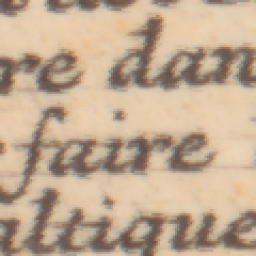 re dan
faire
altique